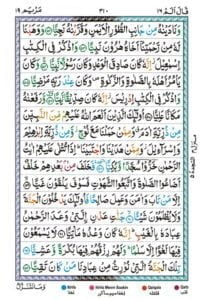 مَرْيَم ١٩
٣١٠
قَالَ اَلَمْ ١٦
وَنَادَيْنٰهُ مِنْ جَانِبِ الطُّوْرِ الْاَيْمَنِ وَقَرَّبْنٰهُ نَجِيًّا ۝ وَوَهَبْنَا
لَهٗ مِنْ رَّحْمَتِنَاۤ اَخَاهُ هٰرُوْنَ نَبِيًّا ۝ وَاذْكُرْ فِى الْكِتٰبِ
اِسْمٰعِيْلَ اِنَّهٗ كَانَ صَادِقَ الْوَعْدِ وَكَانَ رَسُوْلًا نَّبِيًّا ۝ وَكَانَ
يَاْمُرُ اَهْلَهٗ بِالصَّلٰوةِ وَالزَّكٰوةِ وَكَانَ عِنْدَ رَبِّهٖ مَرْضِيًّا ۝
وَاذْكُرْ فِى الْكِتٰبِ اِدْرِيْسَ اِنَّهٗ كَانَ صِدِّيْقًا نَّبِيًّا ۝ وَّرَفَعْنٰهُ
مَكَانًا عَلِيًّا ۝ اُولٰٓئِكَ الَّذِيْنَ اَنْعَمَ اللّٰهُ عَلَيْهِمْ مِّنَ النَّبِيّٖنَ مِنْ
ذُرِّيَّةِ اٰدَمَ وَمِمَّنْ حَمَلْنَا مَعَ نُوْحٍ وَّمِنْ ذُرِّيَّةِ اِبْرٰهِيْمَ وَ
اِسْرَآءِيْلَ وَمِمَّنْ هَدَيْنَا وَاجْتَبَيْنَا اِذَا تُتْلٰى عَلَيْهِمْ اٰيٰتُ
الرَّحْمٰنِ خَرُّوْا سُجَّدًا وَّبُكِيًّا ۝ فَخَلَفَ مِنْۢ بَعْدِهِمْ خَلْفٌ
اَضَاعُوا الصَّلٰوةَ وَاتَّبَعُوا الشَّهَوٰتِ فَسَوْفَ يَلْقَوْنَ
غَيًّا ۝ اِلَّا مَنْ تَابَ وَاٰمَنَ وَعَمِلَ صَالِحًا فَاُولٰٓئِكَ يَدْخُلُوْنَ
الْجَنَّةَ وَلَا يُظْلَمُوْنَ شَيْـًٔا ۝ جَنّٰتِ عَدْنِ ۨالَّتِىْ وَعَدَ الرَّحْمٰنُ
عِبَادَهٗ بِالْغَيْبِ اِنَّهٗ كَانَ وَعْدُهٗ مَاْتِيًّا ۝ لَا يَسْمَعُوْنَ
فِيْهَا لَغْوًا اِلَّا سَلٰمًا وَلَهُمْ رِزْقُهُمْ فِيْهَا بُكْرَةً وَّعَشِيًّا ۝
تِلْكَ الْجَنَّةُ الَّتِىْ نُوْرِثُ مِنْ عِبَادِنَا مَنْ كَانَ تَقِيًّا ۝
وَمَا نَتَنَزَّلُ